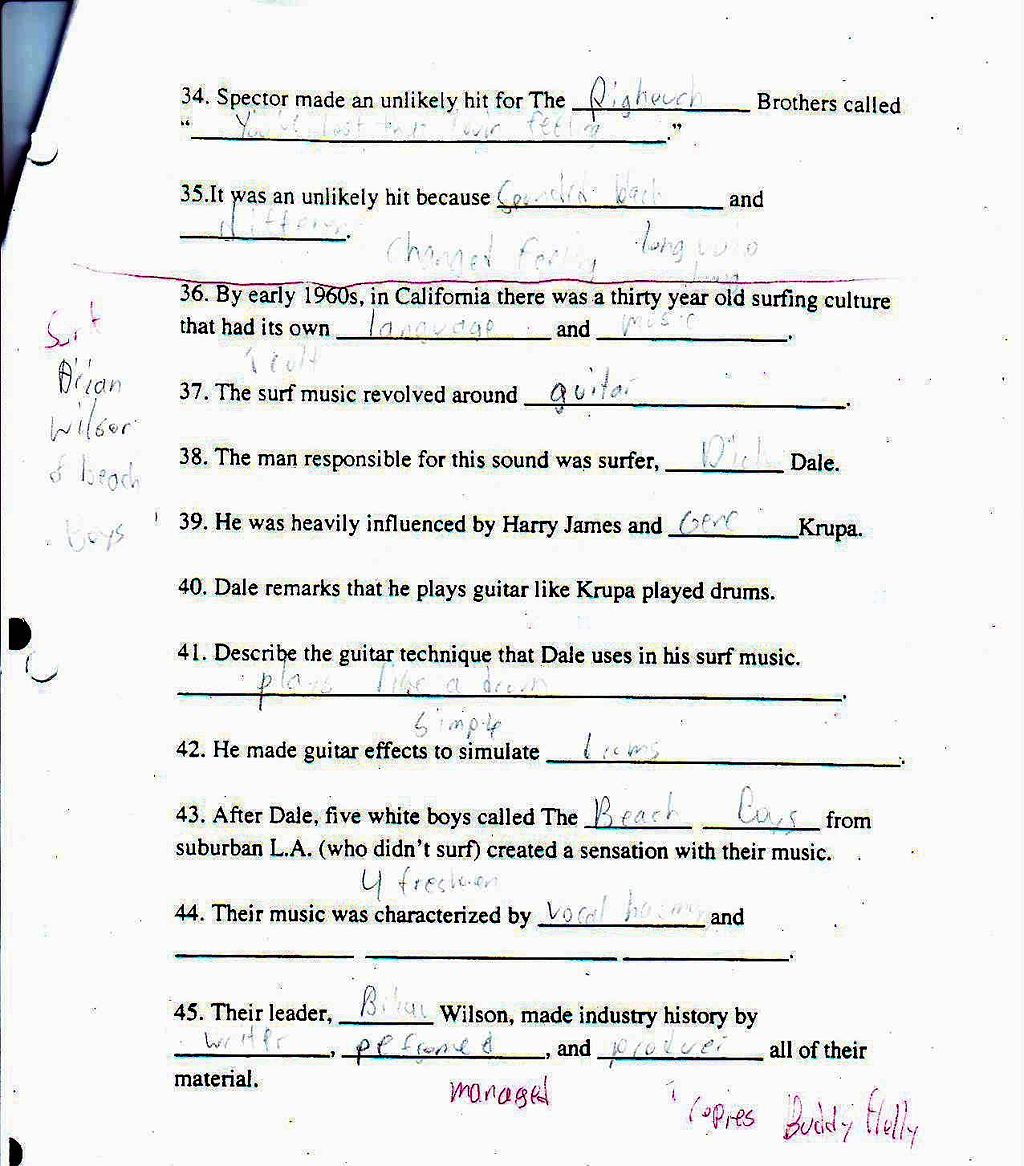 34. Spector made an unlikely hit for The Righeuch Brothers called
“You'll lost that lovin feeling.”
35.It was an unlikely hit because Sounded black and
differen.
Changed feeling long
36. By early 1960s, in California there was a thirty year old surfing culture
that had its own language and music.
Surf
cult
Brian
37. The surf music revolved around guitar.
Wilson
38. The man responsible for this sound was surfer, Dick Dale.
of beach
39. He was heavily influenced by Harry James and Gene Krupa.
Boys
40. Dale remarks that he plays guitar like Krupa played drums.
41. Describe the guitar technique that Dale uses in his surf music.
plays like a drum.
simple
42. He made guitar effects to simulate drums.
43. After Dale, five white boys called The Beach Boys from
suburban L.A. (who didn't surf) created a sensation with their music.
4 freshmen
44. Their music was characterized by vocal harmony and
.
45. Their leader, Brian Wilson, made industry history by
writer, peformed, and producer all of their
material.
managed
copies Buddy Holly